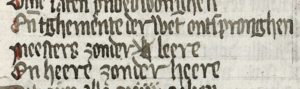 laten onbedwonghen
En tghemente der wet ontspronghen
meesters zonder leere
En heere zonder heere